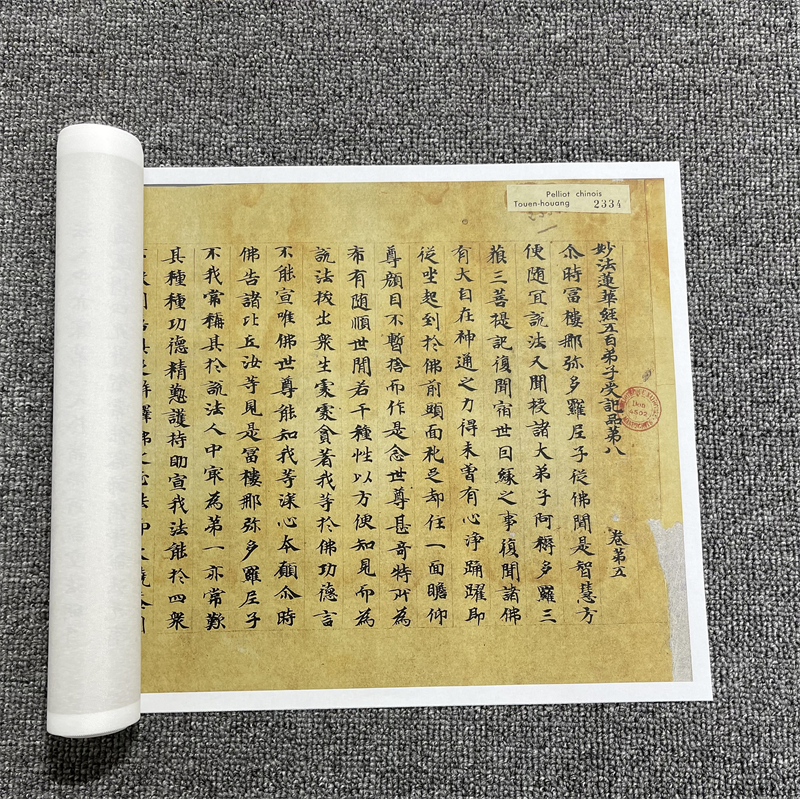 Pelliot chinois
Touen-houang 2334
妙法蓮華經五百弟子受記品第八 卷第五
尒時冨樓那弥多羅尼子従佛聞是智慧方
便随宜說法又聞授諸大弟子阿耨多羅三
藐三菩提記復聞宿世因緣之事復聞諸佛
有大自在神通之力得未曾有心淨踊躍即
従坐起到於佛前頭面礼足却住一面瞻仰
尊顔目不暫捨而作是念世尊甚奇特所為
希有随順世間若干種性以方便知見而為
說法拔出衆生處處貪著我等於佛功德言
不能宣唯佛世尊能知我等深心本願尒時
佛告諸比丘汝等見是冨樓那弥多羅尼子
不我常稱其於說法人中冣為第一亦常歎
其種種功德精懃護持助宣我法能於四衆
Don
4502